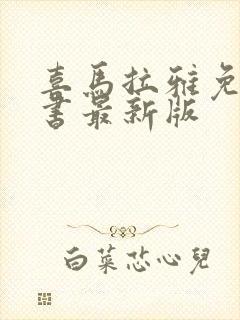 喜马拉雅免
书最新版
白菜芯心兒